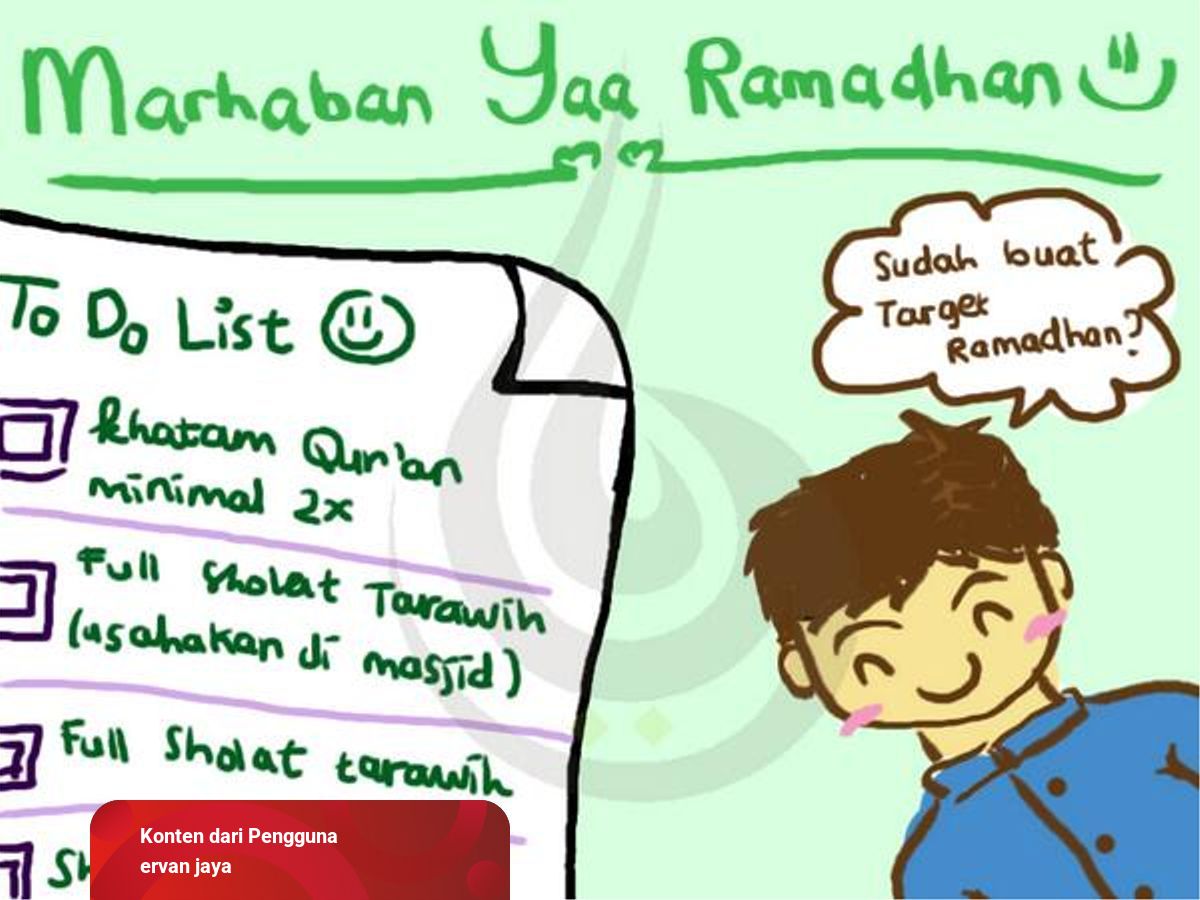 Marhaban Yaa Ramadhan
Sudah buat
Target
Ramadhan?
To Do List
khatam Qur'an
minimal 2x
Full Sholat Tarawih
(usahakan di masjid)
Full Sholat tarawih
Konten dari Pengguna
ervan jaya